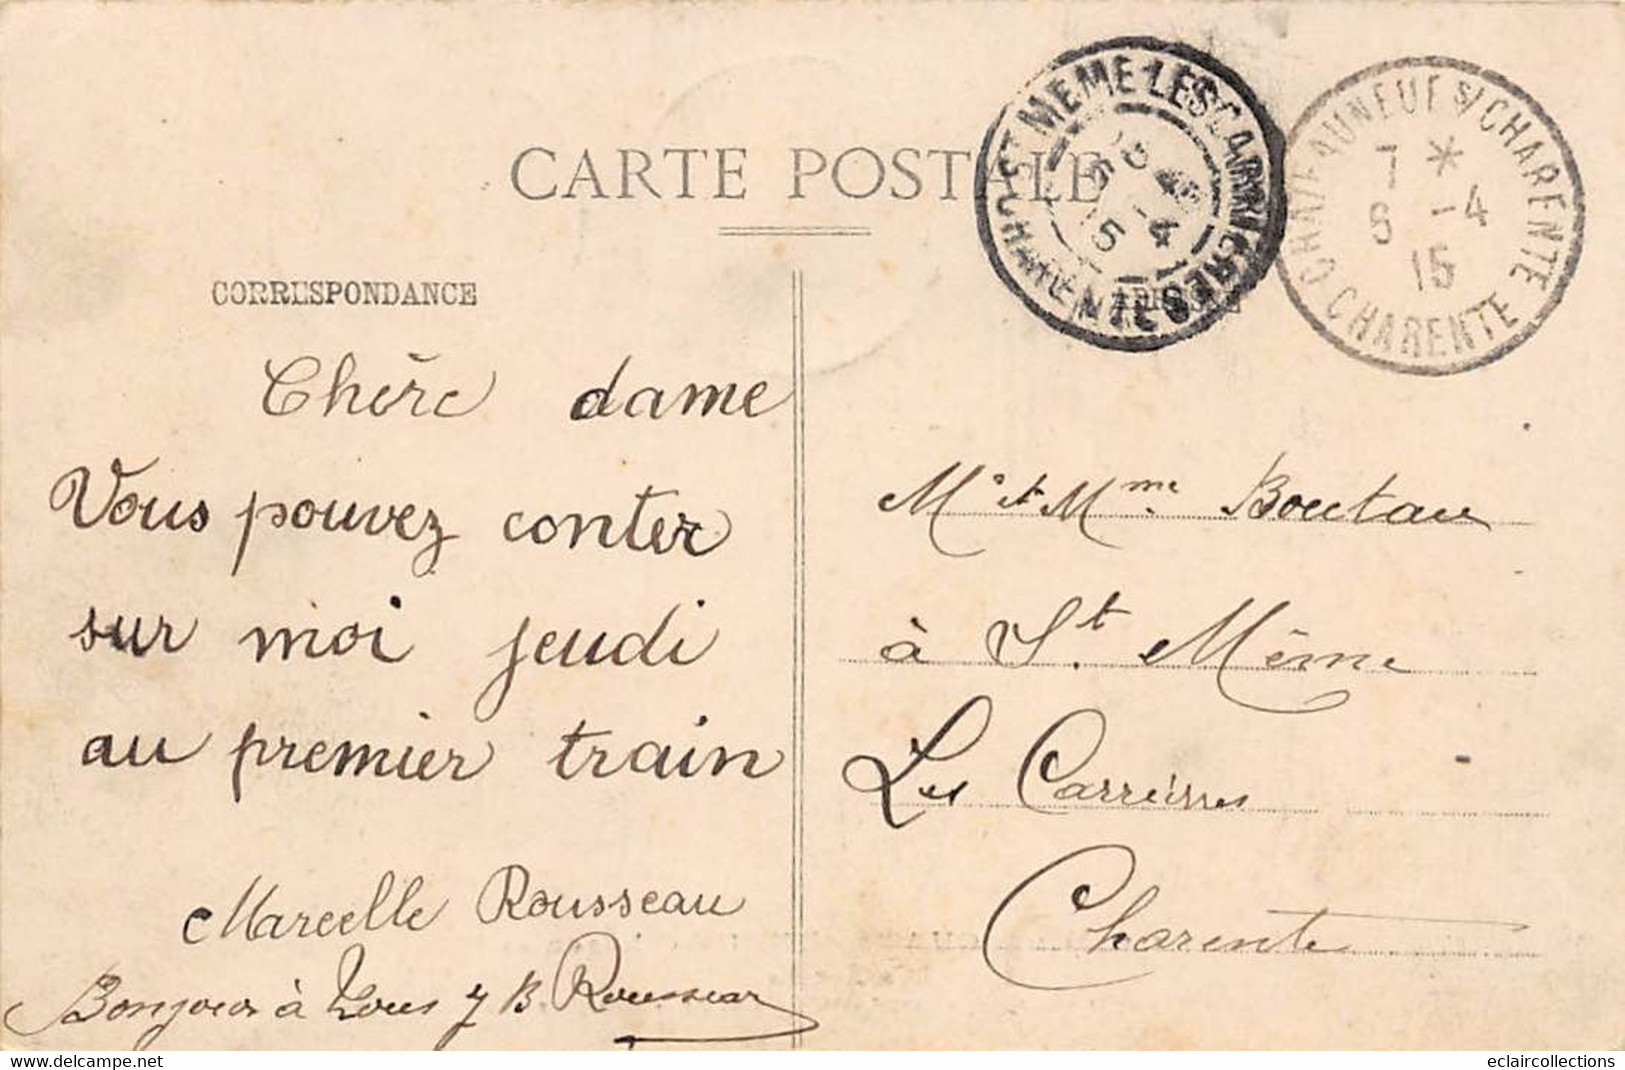 CARTE POSTALE
CORRESPONDANCE
ST MEME-LES-CARRIERES
CHARENTE
5 -4
15
CHATEAUNEUF S/ CHARENTE
7 *
6 -4
15
CHARENTE
Chère dame
Vous pouvez conter
sur moi jeudi
au premier train
Marcelle Rousseau
Bonjour à tous B. Rousseau
Mr et Mme Boutau
à St. Même
Les Carrières
Charente
delcampe.net
eclaircollections